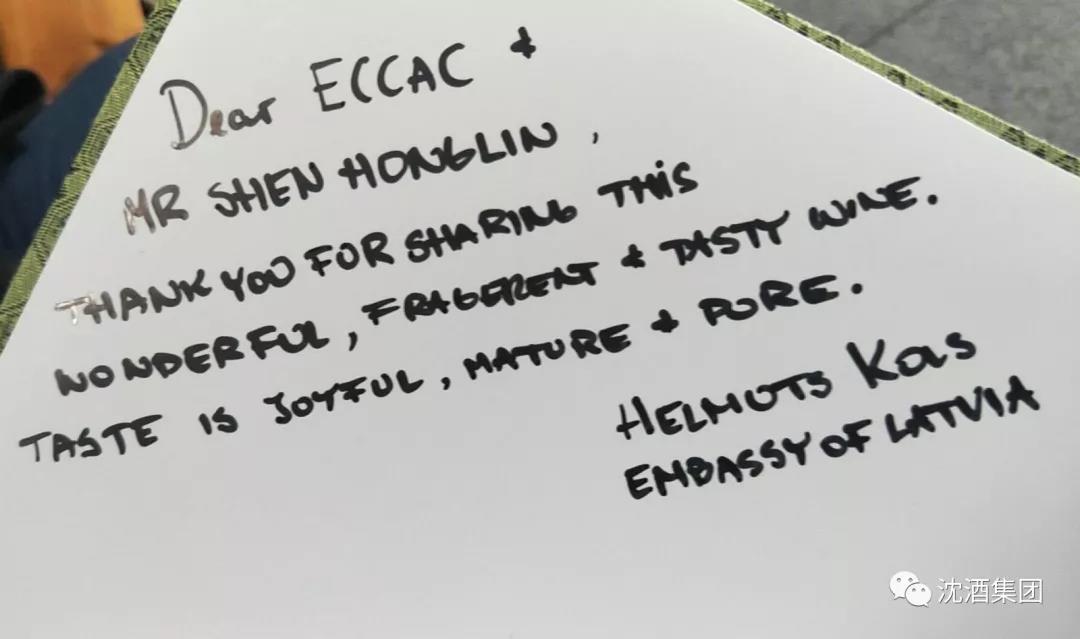 Dear ECCAC &
MR SHEN HONGLIN,
THANK YOU FOR SHARING THIS
WONDERFUL, FRAGERENT & TASTY WINE.
TASTE IS JOYFUL, MATURE & PURE.
HELMUTS Kols
EMBASSY OF LATVIA
沈酒集团